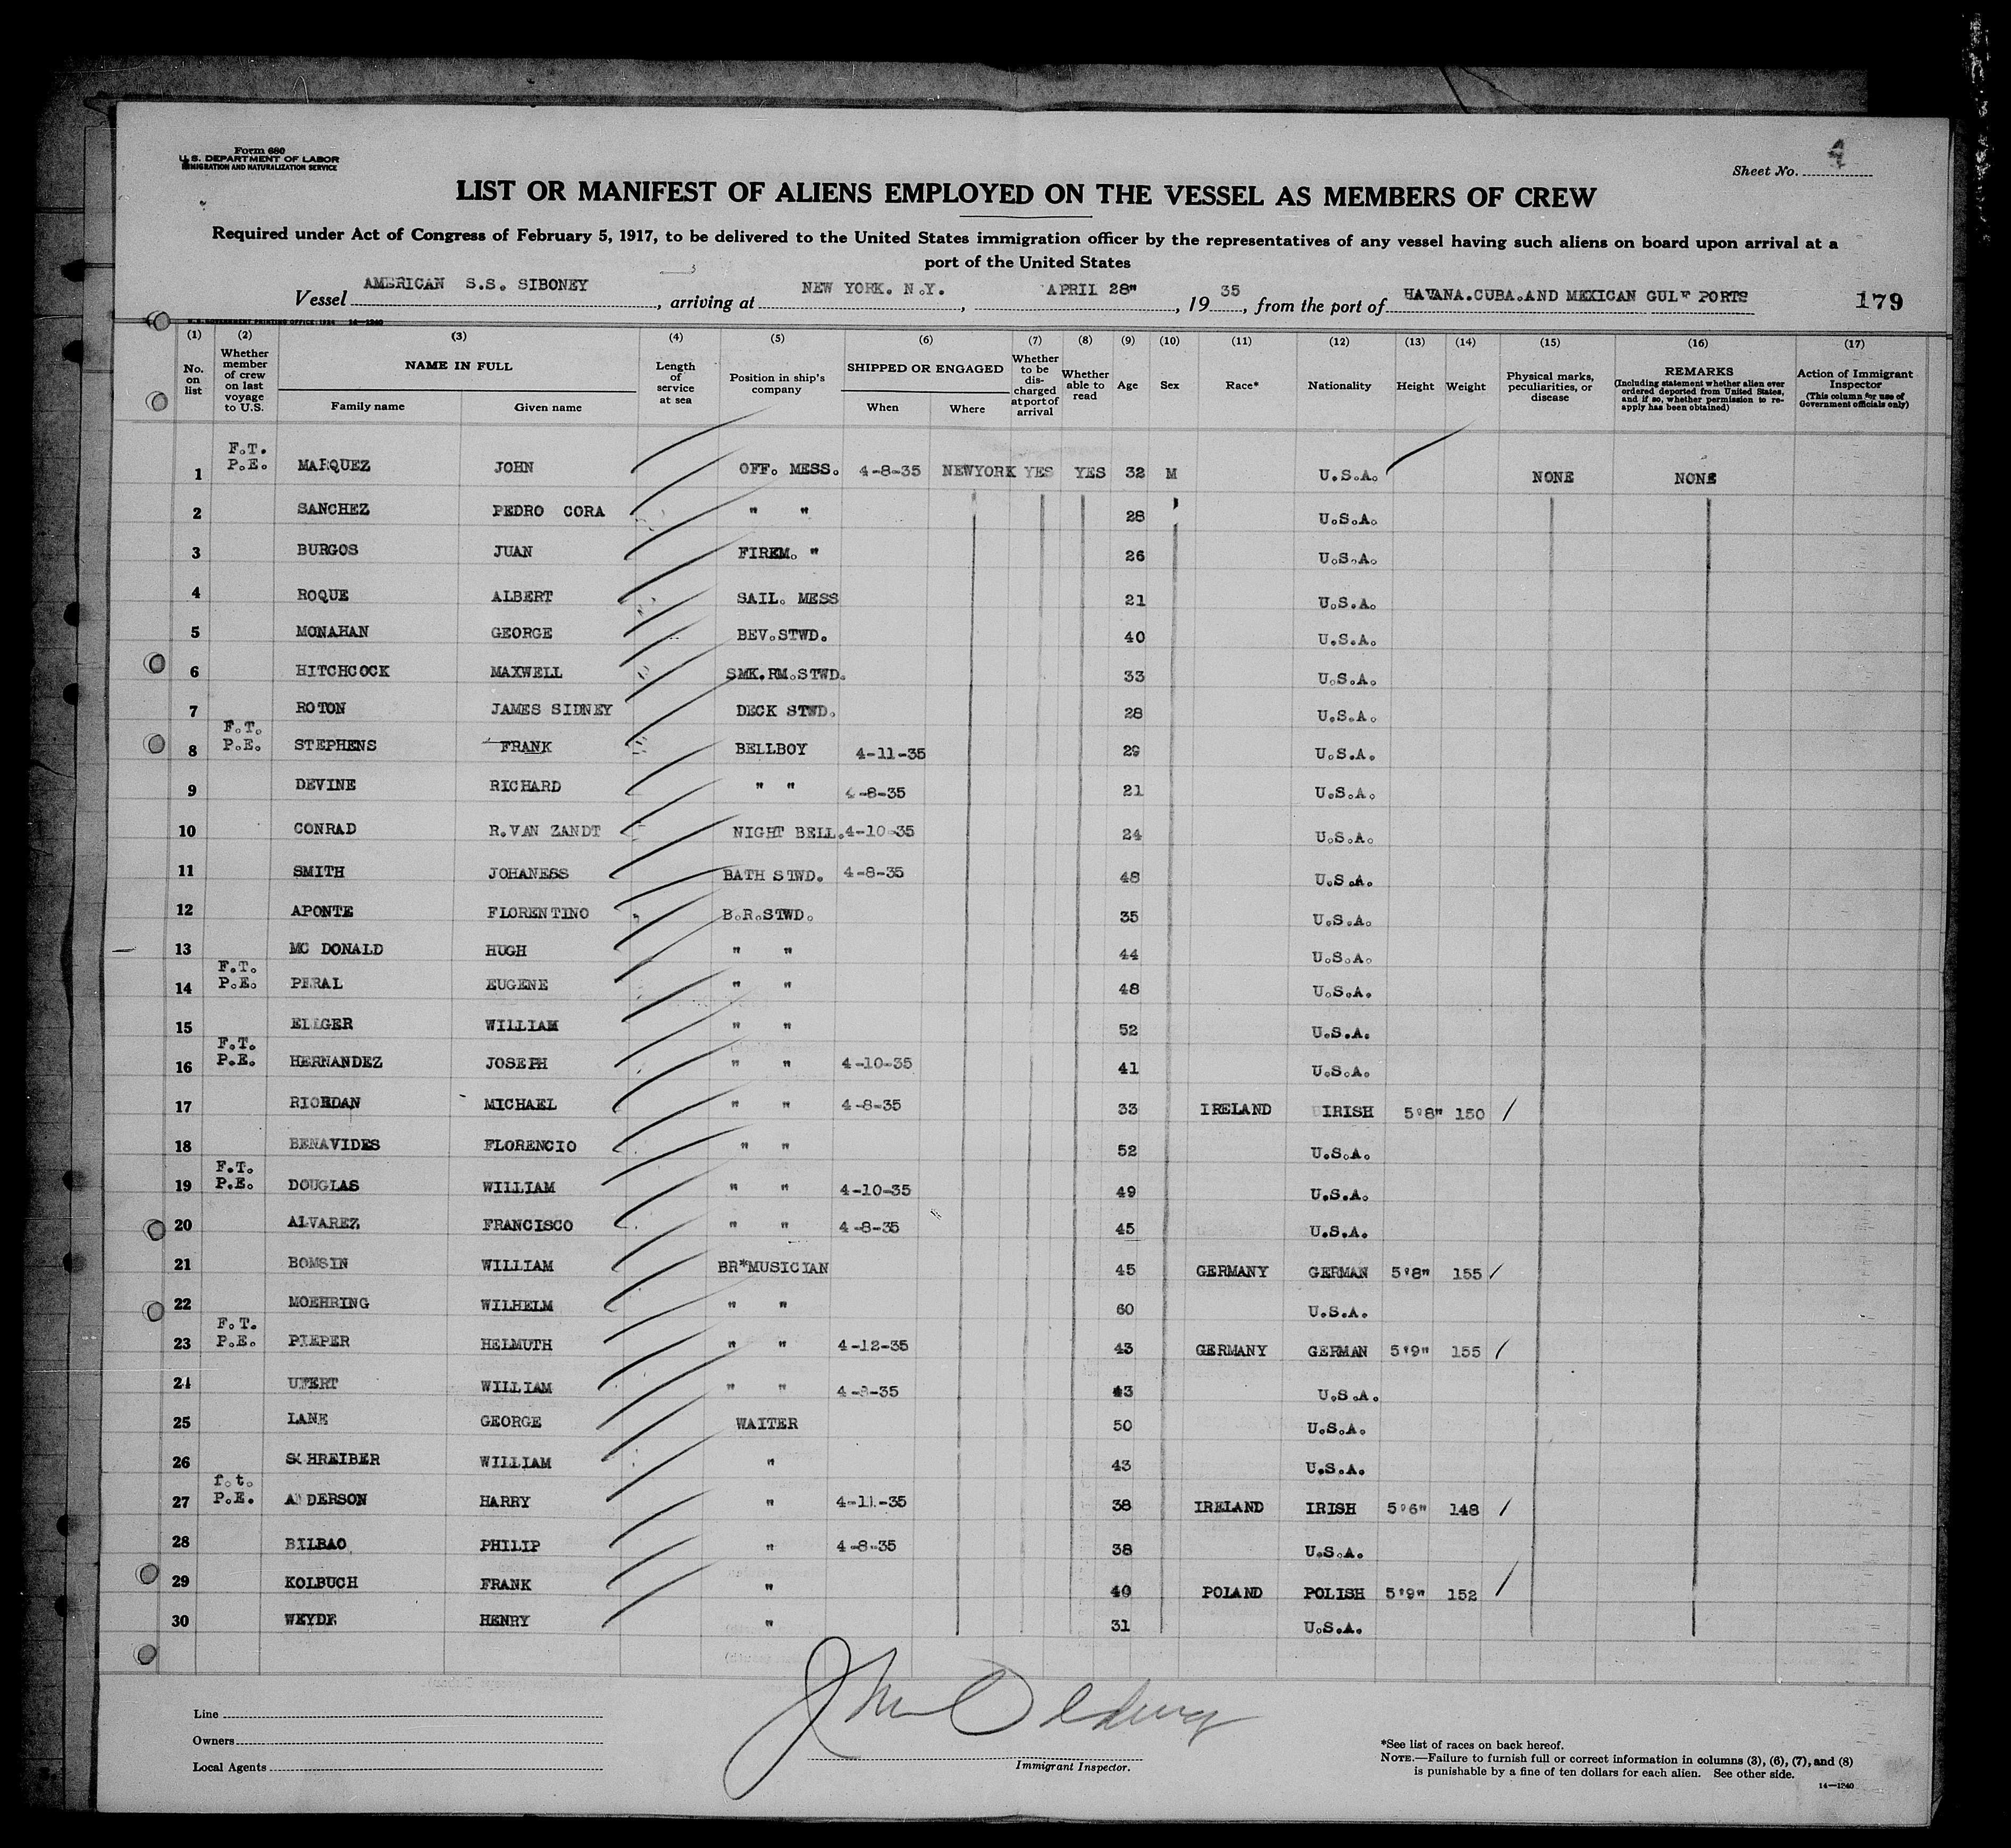 Form 680
U. S. DEPARTMENT OF LABOR
IMMIGRATION AND NATURALIZATION SERVICE
Sheet No. 4
LIST OR MANIFEST OF ALIENS EMPLOYED ON THE VESSEL AS MEMBERS OF CREW
Required under Act of Congress of February 5, 1917, to be delivered to the United States immigration officer by the representatives of any vessel having such aliens on board upon arrival at a
port of the United States
Vessel AMERICAN S.S. SIBONEY, arriving at NEW YORK. N.Y., APRIL 28", 19 35, from the port of HAVANA.CUBA.AND MEXICAN GULF PORTS 179
U. S. GOVERNMENT PRINTING OFFICE: 1934 14—1240
(1) No. on list (2) Whether member of crew on last voyage to U.S. (3) NAME IN FULL Family name Given name (4) Length of service at sea (5) Position in ship's company (6) SHIPPED OR ENGAGED When Where (7) Whether to be discharged at port of arrival (8) Whether able to read (9) Age (10) Sex (11) Race* (12) Nationality (13) Height (14) Weight (15) Physical marks, peculiarities, or disease (16) REMARKS (Including statement whether alien ever ordered deported from United States, and if so, whether permission to re-apply has been obtained) (17) Action of Immigrant Inspector (This column for use of Government officials only)
F.T.
1 P.E. MARQUEZ JOHN OFF. MESS. 4-8-35 NEWYORK YES YES 32 M U.S.A. NONE NONE
2 SANCHEZ PEDRO CORA " " 28 " U.S.A.
3 BURGOS JUAN FIREM. " 26 U.S.A.
4 ROQUE ALBERT SAIL. MESS 21 U.S.A.
5 MONAHAN GEORGE BEV.STWD. 40 U.S.A.
6 HITCHCOCK MAXWELL SMK.RM.STWD. 33 U.S.A.
7 ROTON JAMES SIDNEY DECK STWD. 28 U.S.A.
F.T.
8 P.E. STEPHENS FRANK BELLBOY 4-11-35 29 U.S.A.
9 DEVINE RICHARD " " 4-8-35 21 U.S.A.
10 CONRAD R.VAN ZANDT NIGHT BELL. 4-10-35 24 U.S.A.
11 SMITH JOHANESS BATH STWD. 4-8-35 48 U.S.A.
12 APONTE FLORENTINO B.R.STWD. 35 U.S.A.
13 MC DONALD HUGH " " 44 U.S.A.
F.T.
14 P.E. PERAL EUGENE " " 48 U.S.A.
15 WILLIAM " " 52 U.S.A.
F.T.
16 P.E. HERNANDEZ JOSEPH " " 4-10-35 41 U.S.A.
17 RIORDAN MICHAEL " " 4-8-35 33 IRELAND IRISH 5'8" 150
18 BENAVIDES FLORENCIO " " 52 U.S.A.
F.T.
19 P.E. DOUGLAS WILLIAM " " 4-10-35 49 U.S.A.
20 ALVAREZ FRANCISCO " " 4-8-35 45 U.S.A.
21 BOMSIN WILLIAM BR*MUSICIAN 45 GERMANY GERMAN 5'8" 155
22 MOEHRING WILHELM " " 60 U.S.A.
F.T.
23 P.E. PIEPER HELMUTH " " 4-12-35 43 GERMANY GERMAN 5'9" 155
24 UFERT WILLIAM " " 4-8-35 43 U.S.A.
25 LANE GEORGE WAITER 50 U.S.A.
26 SCHREIBER WILLIAM " 43 U.S.A.
f.t.
27 P.E. ANDERSON HARRY " 4-11-35 38 IRELAND IRISH 5'6" 148
28 BILBAO PHILIP " 4-8-35 38 U.S.A.
29 KOLBUCH FRANK " 40 POLAND POLISH 5'9" 152
30 WEYDE HENRY " 31 U.S.A.
Line
Owners
Local Agents
Immigrant Inspector.
*See list of races on back hereof.
NOTE.—Failure to furnish full or correct information in columns (3), (6), (7), and (8)
is punishable by a fine of ten dollars for each alien. See other side.
14—1240